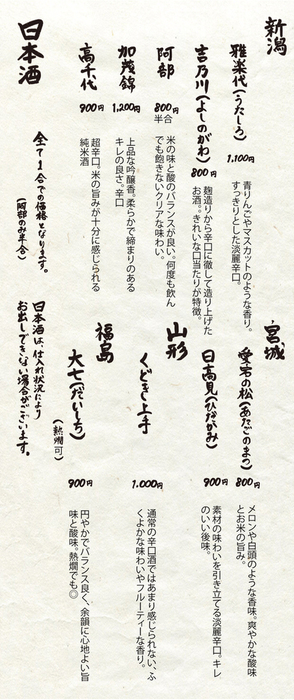 日本酒
全て1合での価格となります。
(阿部のみ半合)
日本酒は、仕入れ状況により
お出しできない場合がございます。
新潟
雅楽代(うたしろ)
1,100円
青りんごやマスカットのような香り。
すっきりとした淡麗辛口。
吉乃川(よしのがわ)
800円
麹造りから辛口に徹して造り上げた
お酒。きれいな口当たりが特徴。
阿部
800円
半合
米の味と酸のバランスが良い。何度も飲ん
でも飽きないクリアな味わい。
加茂錦
1,200円
上品な吟醸香。柔らかで締まりのある
キレの良さ。辛口
高千代
900円
超辛口。米の旨みが十分に感じられる
純米酒
宮城
愛宕の松(あたごのまつ)
800円
メロンや白頭のような香味。爽やかな酸味
とお米の旨み。
日高見(ひたかみ)
900円
素材の味わいを引き立てる淡麗辛口。キレ
のいい後味。
山形
くどき上手
1,000円
通常の辛口酒ではあまり感じられない、ふ
くよかな味わいやフルーティーな香り。
福島
大七(だいしち)
(熱燗可)
900円
円やかでバランス良く、余韻に心地よい旨
味と酸味。熱燗でも◎